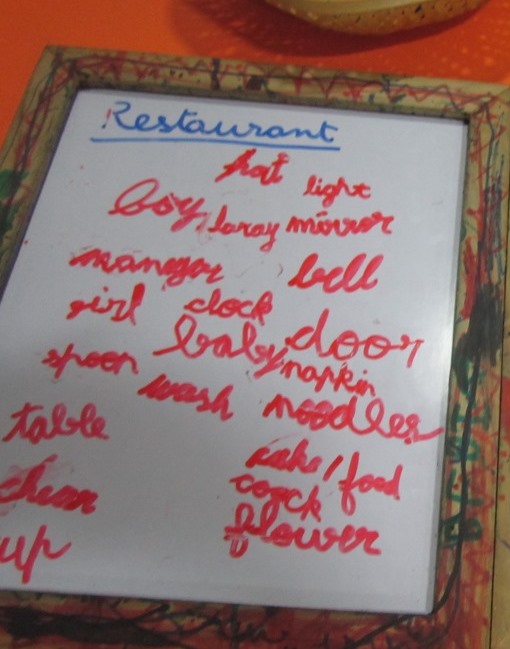 Restaurant
hat light
boy laray mirror
maneger bell
girl clock
baby door
spoon napkin
wash noodles
table
cake/food
coock
flower
up